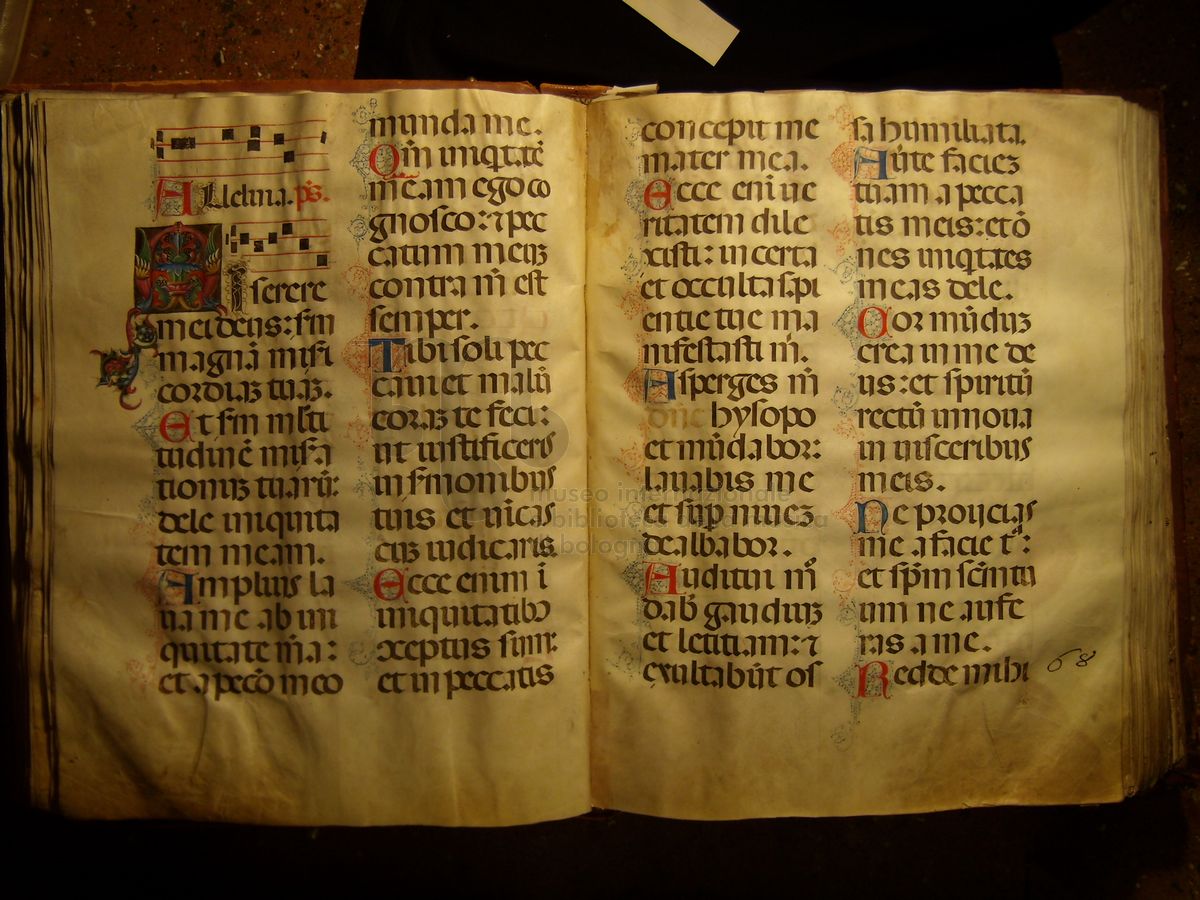 Alleluia. ps.
Miserere
mei deus: sm̄
magnā misi
cordiaʒ tuaʒ.
Et sm̄ mlti
tudinē misa
tionuʒ tuarū:
dele iniquita
tem meam.
Amplius la
ua me ab ini
quitate m̄a:
et a pecō meo
munda me.
Qm̄ iniqtatē
meam ego co
gnosco: ⁊ pec
catum meuʒ
contra m̄ est
semper.
Tibi soli pec
caui et malū
coraʒ te feci:
ut iustificeris
in smonibus
tuis et uīcas
cuʒ iudicaris.
Ecce enim ī
iniquitatibꝫ
cceptus sum:
et in peccatis
concepit me
mater mea.
Ecce eni ue
ritatem dile
xisti: incerta
et occulta sapi
entie tue ma
nifestasti m̄.
Asperges m̄
dn̄e hysopo
et mūdabor:
lauabis me
et sup niueʒ
dealbabor.
Auditui m̄
dab̄ gaudiuʒ
et letitiam: ⁊
exultabūt os
sa humiliata.
Aute facieʒ
tuam a pecca
tis meis: et ō
nes iniqtates
meas dele.
Cor mūduʒ
crea in me de
us: et spiritū
rectū innoua
in uisceribus
meis.
Ne proicias
me a facie t̄:
et sp̄m sc̄m tu
um ne aufe
ras a me.
Redde mihi
68
museo internazionale
biblioteca della musica
bologna